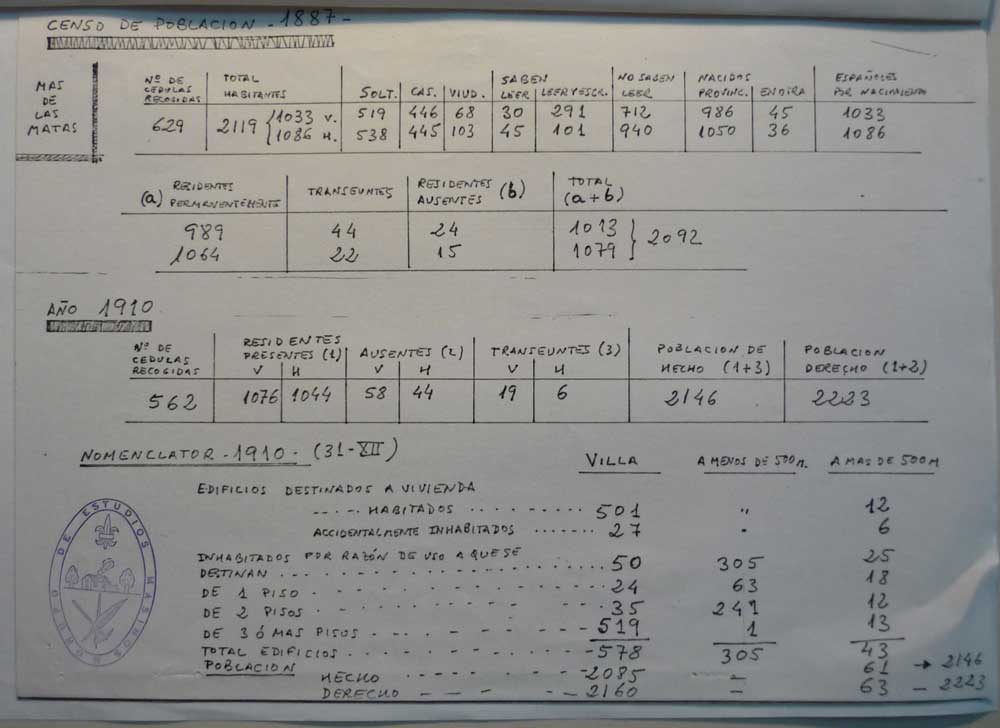 CENSO DE POBLACION - 1887 -
MAS DE LAS MATAS
Nº DE CEDULAS RECOGIDAS | TOTAL HABITANTES | SOLT. | CAS. | VIUD. | SABEN LEER | LEER Y ESCR. | NO SABEN LEER | NACIDOS PROVINC. | EN OTRA | ESPAÑOLES POR NACIMIENTO
629 | 2119 { 1033 V. | 519 | 446 | 68 | 30 | 291 | 712 | 986 | 45 | 1033
1086 H. | 538 | 445 | 103 | 45 | 101 | 940 | 1050 | 36 | 1086
(a) RESIDENTES PERMANENTEMENTE | TRANSEUNTES | RESIDENTES AUSENTES (b) | TOTAL (a+b)
989 | 44 | 24 | 1013 } 2092
1064 | 22 | 15 | 1079
AÑO 1910
Nº DE CEDULAS RECOGIDAS | RESIDENTES PRESENTES (1) | AUSENTES (2) | TRANSEUNTES (3) | POBLACION DE HECHO (1+3) | POBLACION DERECHO (1+2)
V | H | V | H | V | H
562 | 1076 | 1044 | 58 | 44 | 19 | 6 | 2146 | 2223
NOMENCLATOR - 1910 - (31-XII)
VILLA | A MENOS DE 500 M. | A MAS DE 500 M
EDIFICIOS DESTINADOS A VIVIENDA
HABITADOS 501 " 12
ACCIDENTALMENTE INHABITADOS 27 " 6
INHABITADOS POR RAZÓN DE USO A QUE SE
DESTINAN 50 305 25
DE 1 PISO 24 63 18
DE 2 PISOS 35 241 12
DE 3 Ó MAS PISOS 519 1 13
TOTAL EDIFICIOS 578 305 43
POBLACION
HECHO 2085 - 61 → 2146
DERECHO 2160 - 63 - 2223
GRUPO DE ESTUDIOS MASINOS